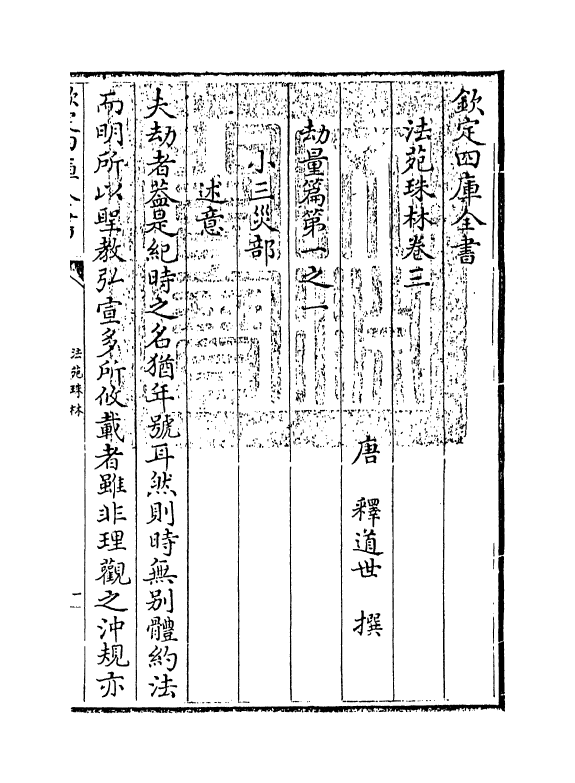 欽定四庫全書
法苑珠林卷三
唐 釋道世 撰
劫量篇第一之一
小三災部
述意
夫劫者葢是紀時之名猶年號耳然則時無别體約法
而明所以聖教弘宣多所攸載者雖非理觀之沖規亦
欽定四庫全書
法苑珠林
一